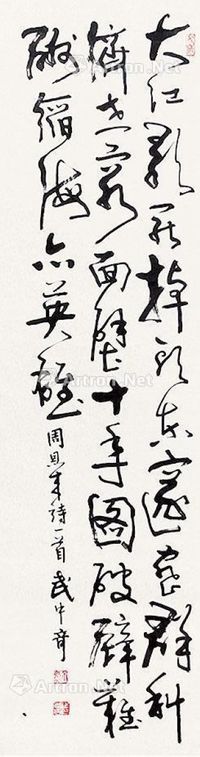 大江歌罢掉头东邃密群科
济世穷面壁十年图破壁难
酬蹈海亦英雄
周恩来诗一首武中奇
Artron.Net
Artron.Net
Artron.Net
Artron.Net